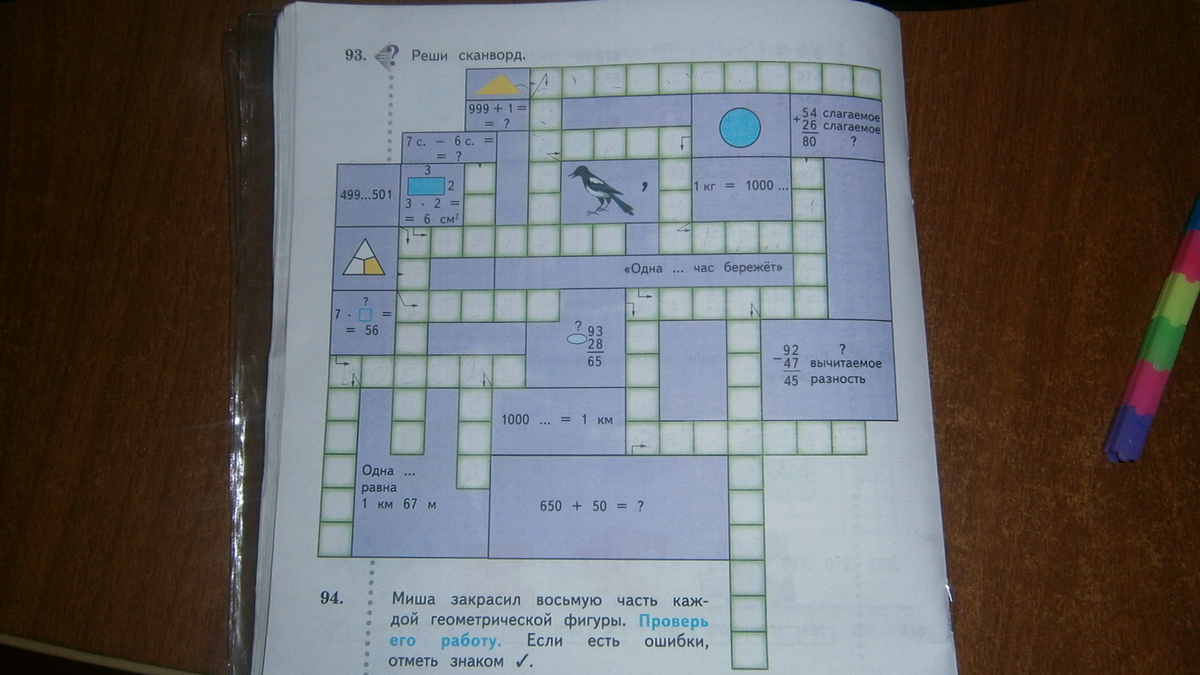 93. ? Реши сканворд.
999 + 1 =
= ?
+ 54 слагаемое
26 слагаемое
80 ?
7 с. − 6 с. =
= ?
499...501
3
2
3 · 2 =
= 6 см²
,
1 кг = 1000 ...
«Одна ... час бережёт»
?
7 · □ =
= 56
? 93
28
65
92 ?
− 47 вычитаемое
45 разность
1000 ... = 1 км
Одна ...
равна
1 км 67 м
650 + 50 = ?
94. Миша закрасил восьмую часть каж-
дой геометрической фигуры. Проверь
его работу. Если есть ошибки,
отметь знаком ✓.